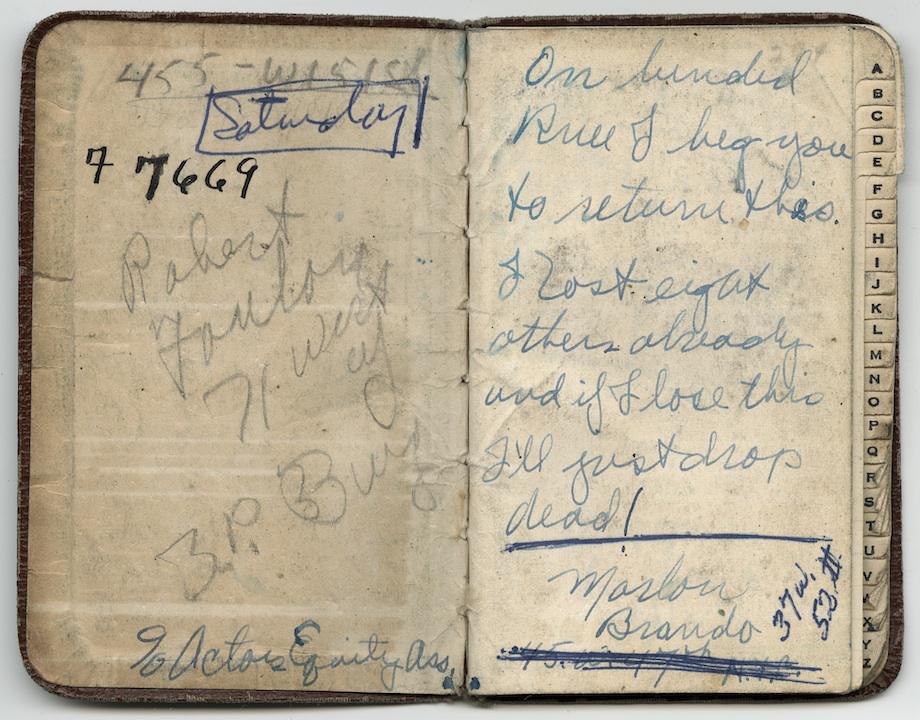 455 - W 15 ISt
Saturday
7 7669
Robert
Fowlon
71 West
of
3.P. Bui
% Actors Equity Ass.
On bended
Knee I beg you
to return this.
I lost eight
others already
and if I lose this
I'll just drop
dead!
Marlon
Brando
37 W.
52 II
45. W. 47th
A
B
C
D
E
F
G
H
I
J
K
L
M
N
O
P
Q
R
S
T
U
V
W
X
Y
Z